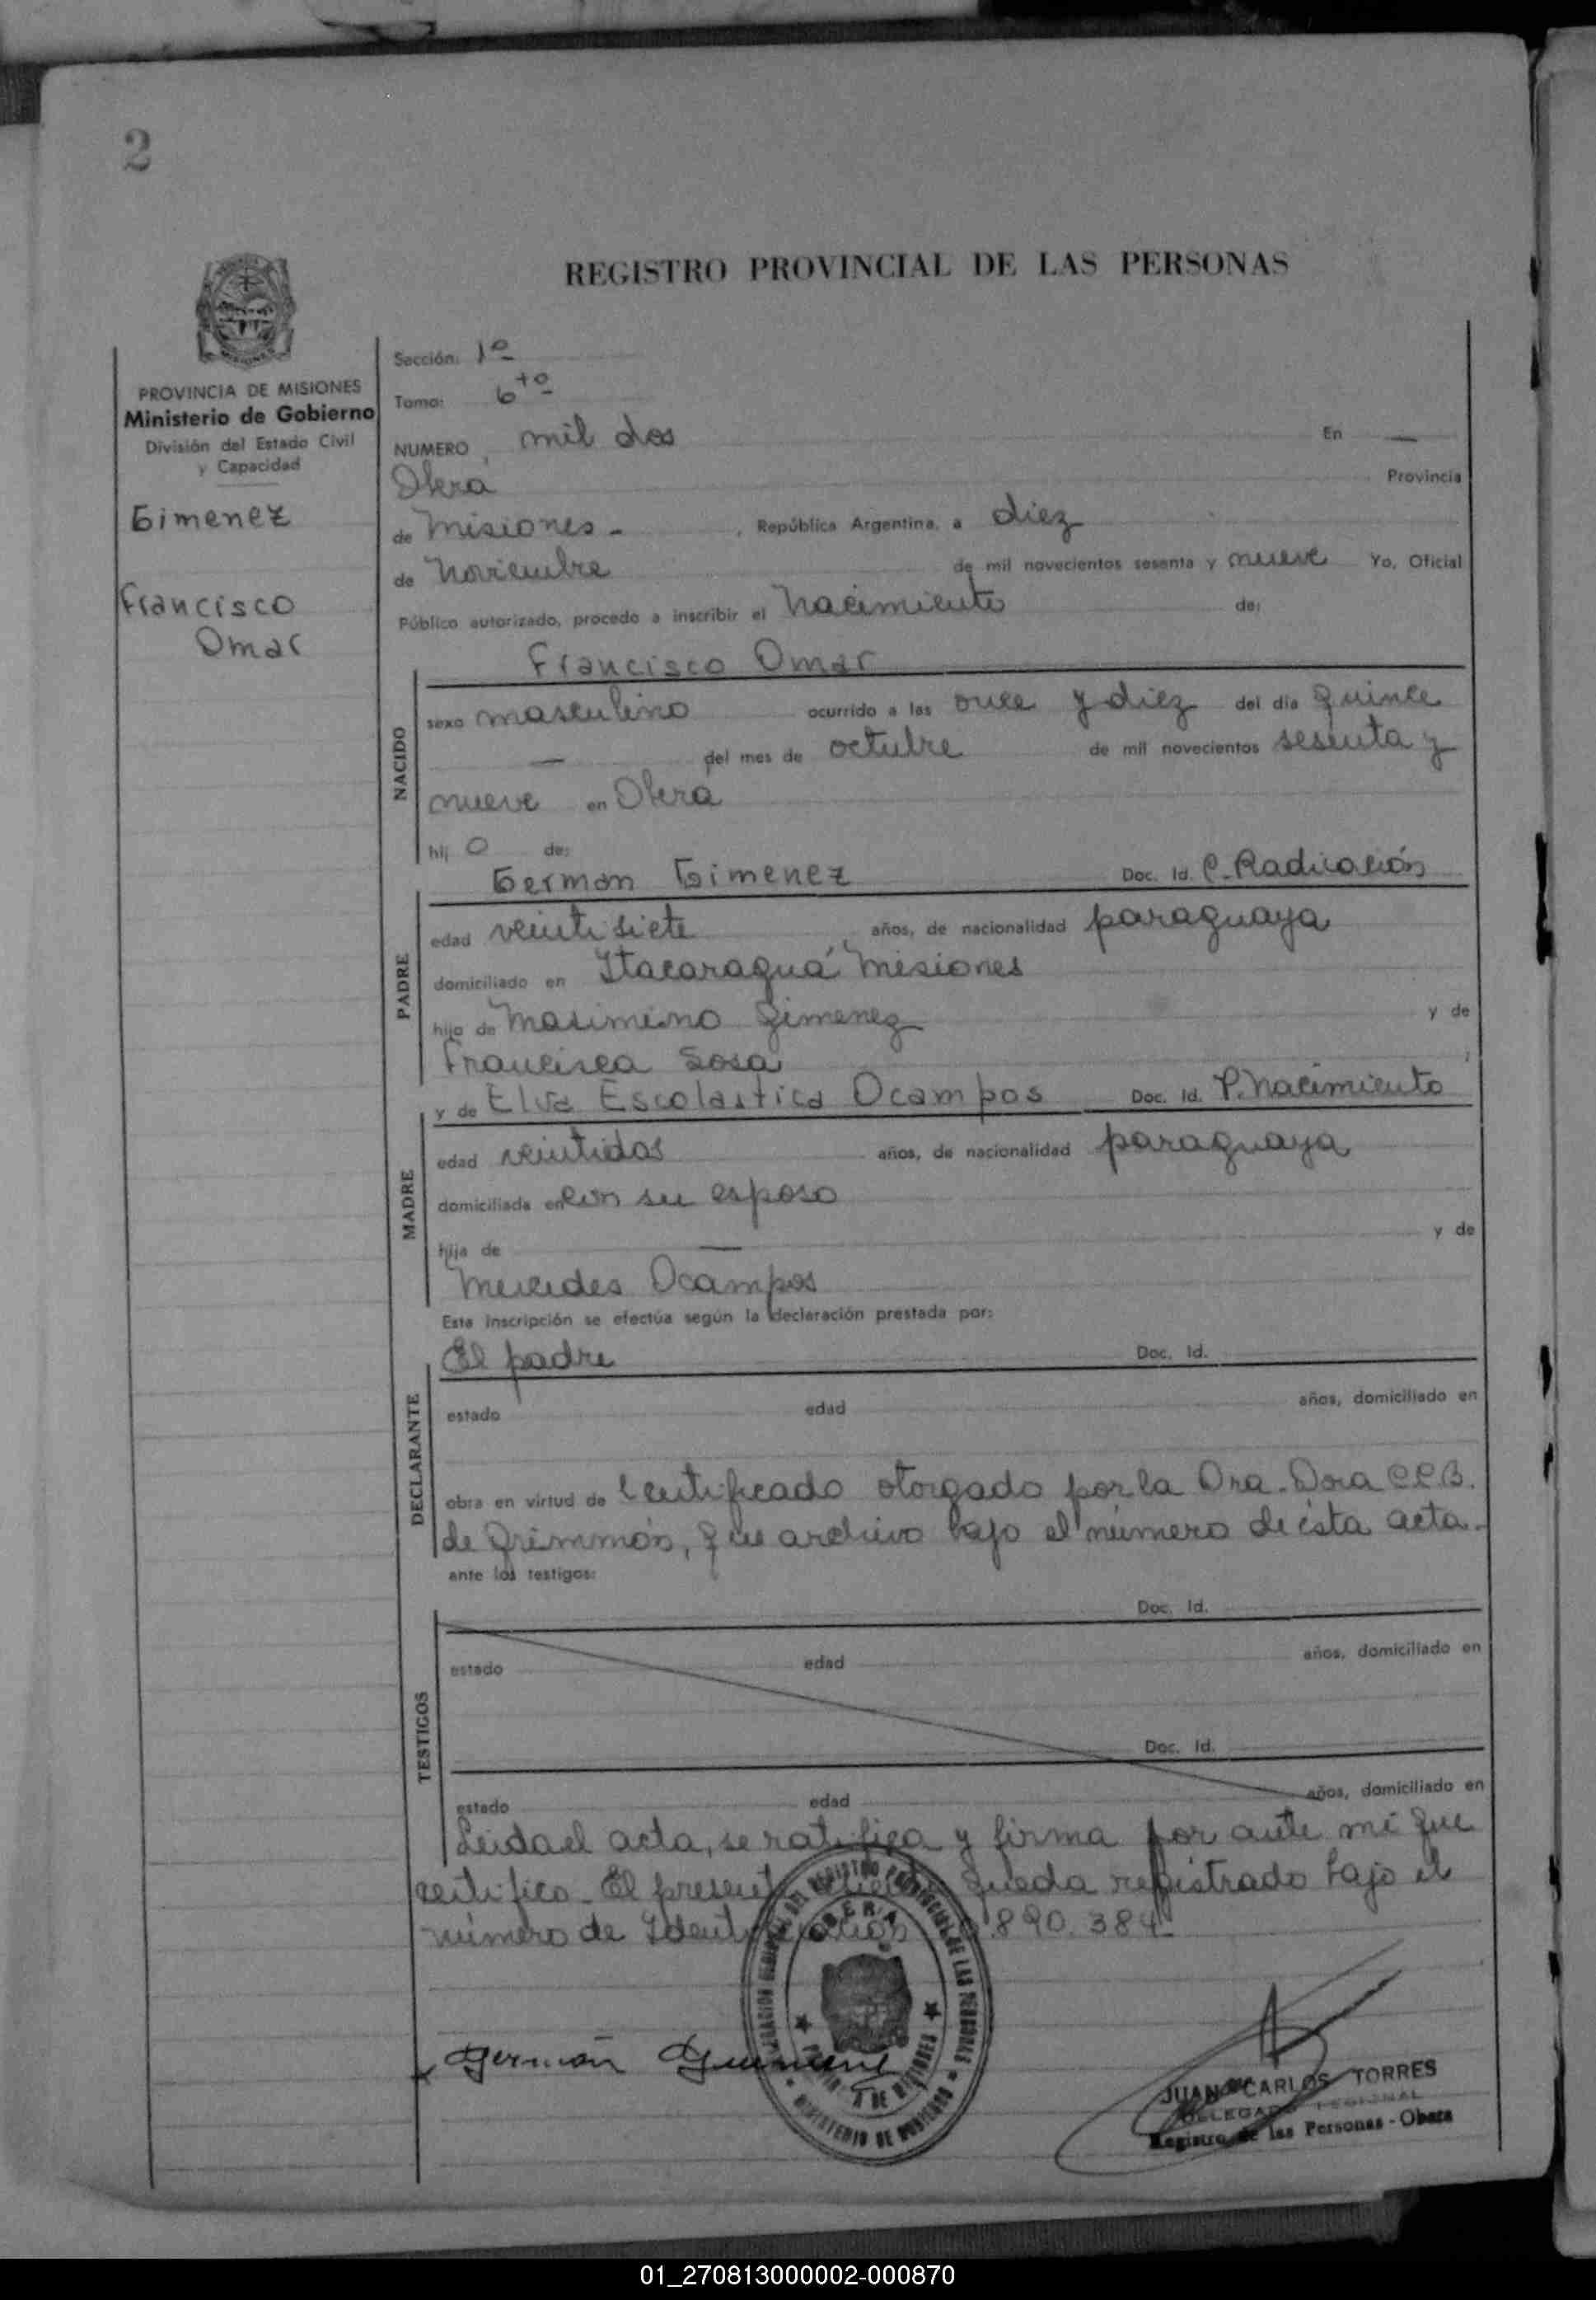 2
REGISTRO PROVINCIAL DE LAS PERSONAS
PROVINCIA DE MISIONES
Ministerio de Gobierno
División del Estado Civil
y Capacidad
Gimenez
Francisco
Omar
Sección: 1º
Tomo: 6to
NUMERO, mil dos En —
Oberá Provincia
de Misiones - , República Argentina, a diez
de Noviembre de mil novecientos sesenta y nueve Yo, Oficial
Público autorizado, procedo a inscribir el Nacimiento de:
Francisco Omar
NACIDO
sexo masculino ocurrido a las once y diez del día quince
— del mes de octubre de mil novecientos sesenta y
nueve en Oberá
hij o de:
German Gimenez Doc. Id. C. Radicación
PADRE
edad veintisiete años, de nacionalidad paraguaya
domiciliado en Itacaraguá Misiones
hijo de Maximino Gimenez y de
Francisca Sosa
y de Elva Escolastica Ocampos Doc. Id. P. Nacimiento
MADRE
edad veintidos años, de nacionalidad paraguaya
domiciliada en con su esposo
hija de — y de
Mercedes Ocampos
Esta inscripción se efectúa según la declaración prestada por:
El padre Doc. Id.
DECLARANTE
estado edad años, domiciliado en
obra en virtud de certificado otorgado por la Dra. Dora C.C.B.
de Grimmón, que archivo bajo el número de ésta acta.
ante los testigos:
Doc. Id.
TESTIGOS
estado edad años, domiciliado en
Doc. Id.
estado edad años, domiciliado en
Leida el acta, se ratifica y firma por ante mí que
certifico. El presente queda registrado bajo el
número de Identificación 890.384
OBERA
MINISTERIO DE GOBIERNO
German Gimenez
JUAN CARLOS TORRES
DELEGADO REGIONAL
Registro de las Personas - Obera
01_270813000002-000870